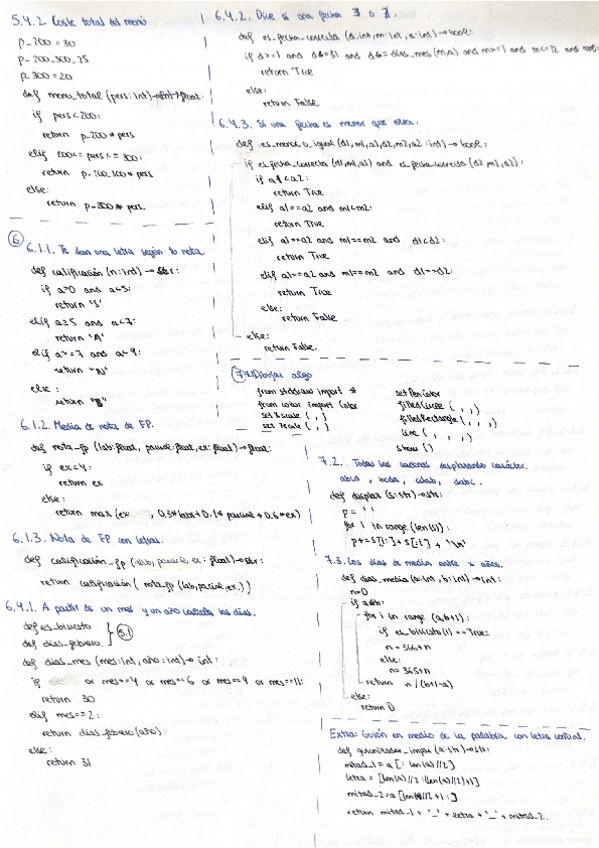 5.4.2 Coste total del menú
p_200 = 30
p_200_300_25
p_300 = 20
def menu_total (pers: int) → float:
if pers < 200:
return p_200 * pers
elif 200 <= pers <= 300:
return p_200_300 * pers
else:
return p_300 * pers.
6
6.1.1. Te dan una letra según tu nota.
def calificación (n: int) → str:
if a>0 and a<5:
return 'S'
elif a≥5 and a<7:
return 'A'
elif a>=7 and a<9:
return "N"
else :
return "B"
6.1.2 Media de nota de FP.
def nota_fp (lab: float, parcial: float, ex: float) → float:
if ex<4:
return ex
else:
return max (ex , 0.3*lab + 0.1* parcial + 0.6*ex)
6.1.3. Nota de FP con letras.
def calificación_fp (lab, parcial, ex : float) → str:
return calificación ( nota_fp (lab, parcial, ex,))
6.4.1. A partir de un mes y un año calcula los días.
def es_bisiesto
def dias_febrero
5.1
def dias_mes (mes: int, año: int) → int:
if or mes==4 or mes==6 or mes==9 or mes==11:
return 30
elif mes==2:
return dias_febrero (año):
else:
return 31
6.4.2. Dice si una fecha ∃ o ∄.
def es_fecha_correcta (d: int, m: int, a: int) → bool:
if d>=1 and d<=31 and d<= dias_mes (m,a) and m>=1 and m<=12 and
return True
else:
return False.
6.4.3. Si una fecha es menor que otra.
def es_menor_o_igual (d1, m1, a1, d2, m2, a2 : int) → bool:
if es_fecha_correcta (d1, m1, a1) and es_fecha_correcta (d2, m2, a2):
if a1<a2:
return True
elif a1==a2 and m1<m2:
return True
elif a1==a2 and m1==m2 and d1<d2:
return True
elif a1==a2 and m1==m2 and d1==d2:
return True
else:
return False
else:
return False.
7.1 Dibujar algo
from stddraw import *
from color import Color
setXscale ( , )
setYscale ( , )
setPenColor
filledCircle ( , , )
filledRectangle ( , , , )
line ( , , , )
show ()
7.2. Todas las cadenas desplazando carácter.
abcd , bcda, cdab, dabc.
def desplaz (s: str) → str:
p = ' '
for i in range (len(s)):
p+= s[i:] + s[:i] + '\n'
7.3. Los días de media entre x años.
def dias_media (a: int, b: int) → int:
n=0
if a<b:
for i in range (a, b+1):
if es_bisiesto(i) == True:
n = 366+n
else:
n = 365+n
return n / (b+1-a)
else:
return 0
Extra: Guión en medio de la palabra con letra central.
def guionizador_impar (a: str) → str:
mitad_1 = a [ : len(a)//2]
letra = [len(a)//2 : (len(a)//2)+1]
mitad_2 = a [len(a)//2 +1 : ]
return mitad_1 + '_' + letra + '_' + mitad_2.